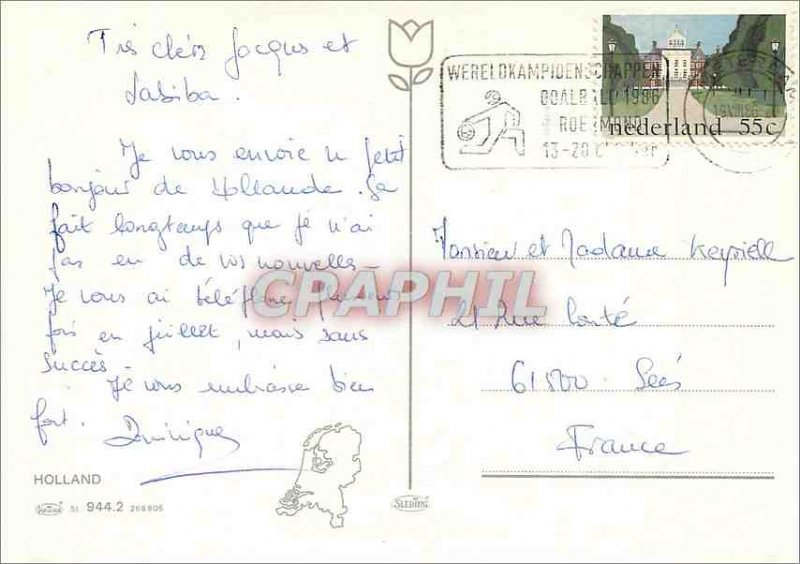 Très chers Jacques et
Labiba.
Je vous envoie un petit
bonjour de Hollande. Ça
fait longtemps que je n'ai
pas eu de vos nouvelles -
Je vous ai téléphoné plusieurs
fois en juillet, mais sans
succès -
Je vous embrasse bien
fort. Dominique
HOLLAND
51 944.2
WERELDKAMPIOENSCHAPPEN
GOALBALL 1986
ROERMOND
13-20
nederland 55c
CPAPHIL
Monsieur et Madame
21 Rue Conté
61500 - Sées
France